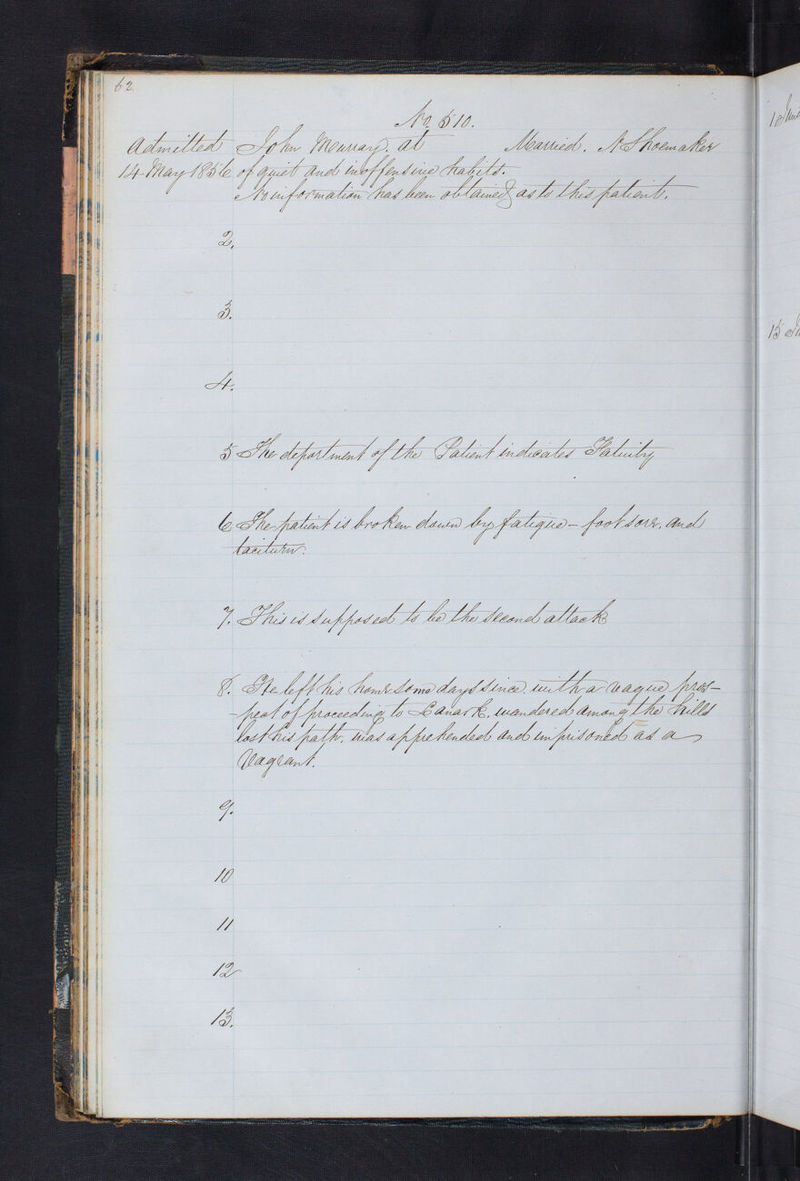 62
No 510.
Admitted John Murray. at Married. A Shoemaker
14 May 1856 of quiet and inoffensive habits.
No information has been obtained as to this patient.
2.
3.
4.
5 The department of the Patient indicates Fatuity
6 The patient is broken down by fatigue - footsore, and
taciturn.
7. This is supposed to be the second attack
8. He left his home some days since with a vague pros-
-pect of proceeding to Lanark, wandered among the hills
lost his path, was apprehended and imprisoned as a
Vagrant.
9.
10
11
12
13.
1 June
15